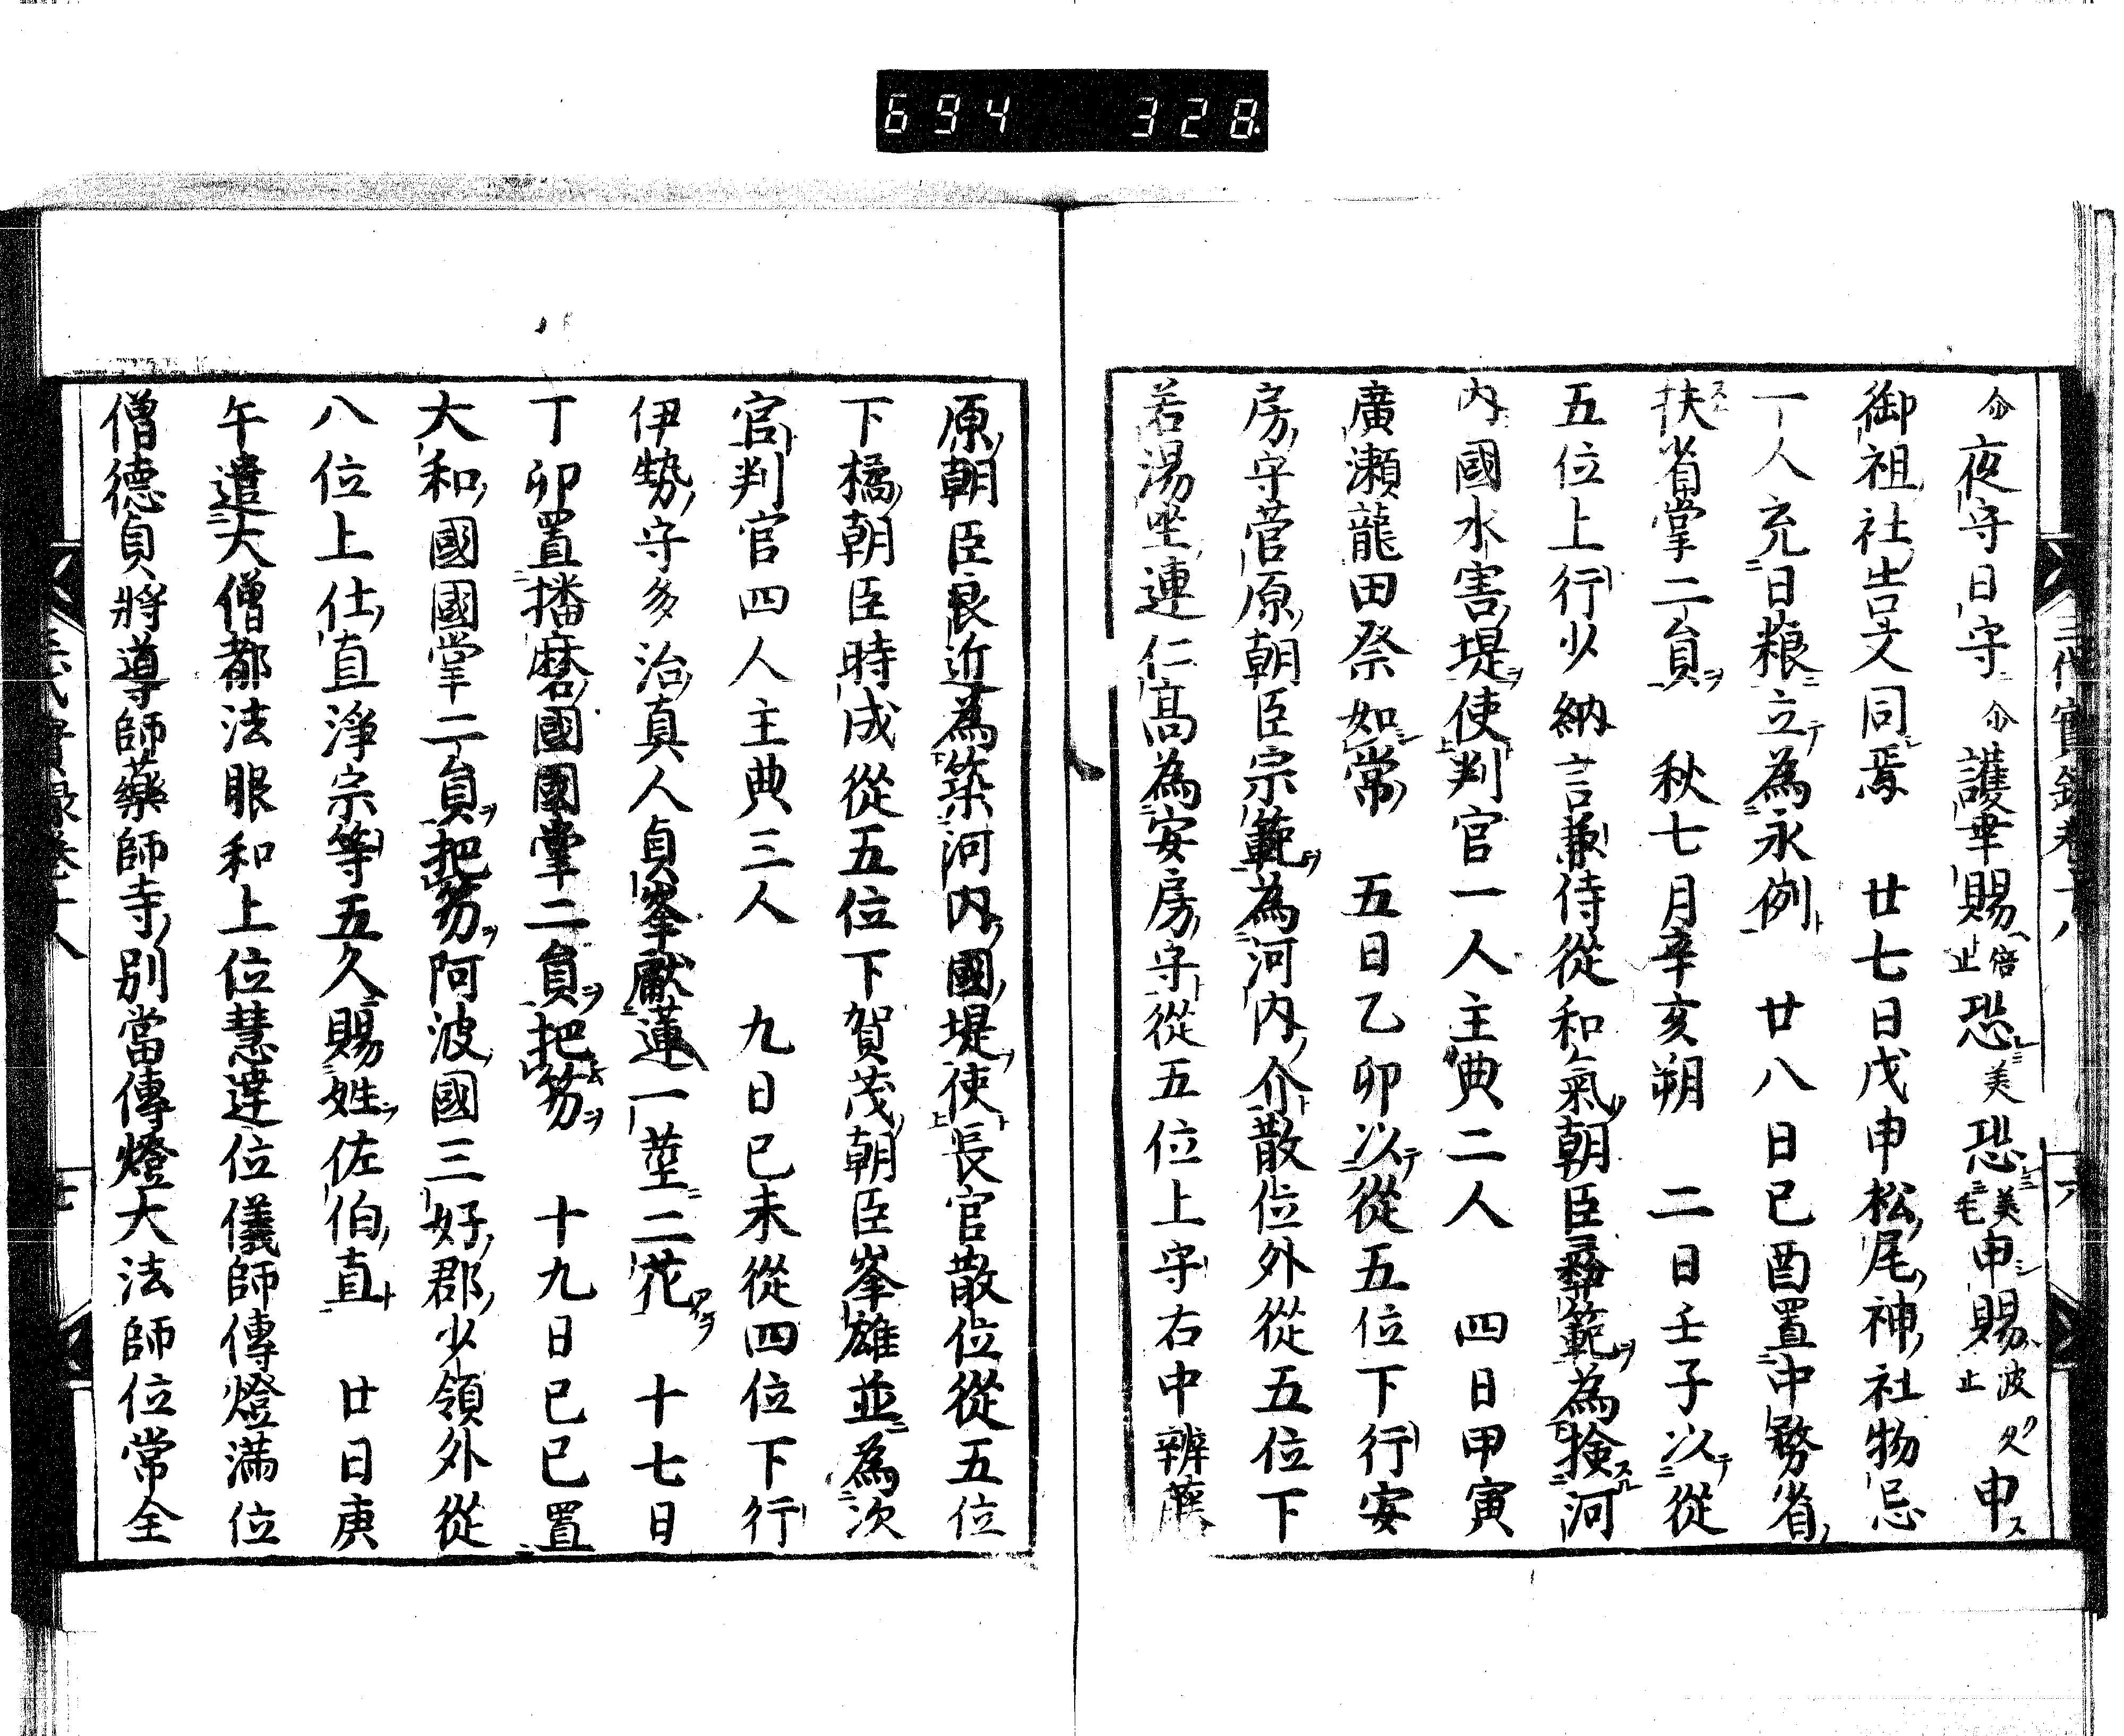 694 328
三代實錄卷十八
尒夜守日守尒護幸賜倍止恐美恐美毛申賜波久止申
御祖社告文同焉 廿七日戊申松尾神社物忌
一人充日粮立為永例 廿八日己酉置中務省
扶省掌二員 秋七月辛亥朔 二日壬子以從
五位上行少納言兼侍從和氣朝臣彞範為撿河
内國水害堤使判官一人主典二人 四日甲寅
廣瀨龍田祭如常 五日乙卯以從五位下行安
房守菅原朝臣宗範為河内介散位外從五位下
若湯坐連仁高為安房守從五位上守右中辨藤
原朝臣良近為築河内國堤使長官散位從五位
下橘朝臣時成從五位下賀茂朝臣峯雄並為次
官判官四人主典三人 九日己未從四位下行
伊勢守多治真人貞峯獻蓮一莖二花 十七日
丁卯置播磨國國掌二員把笏 十九日己巳置
大和國國掌二員把笏阿波國三好郡少領外從
八位上仕直淨宗等五久賜姓佐伯直 廿日庚
午遣大僧都法眼和上位慧達位儀師傳燈滿位
僧德貞將導師藥師寺別當傳燈大法師位常全